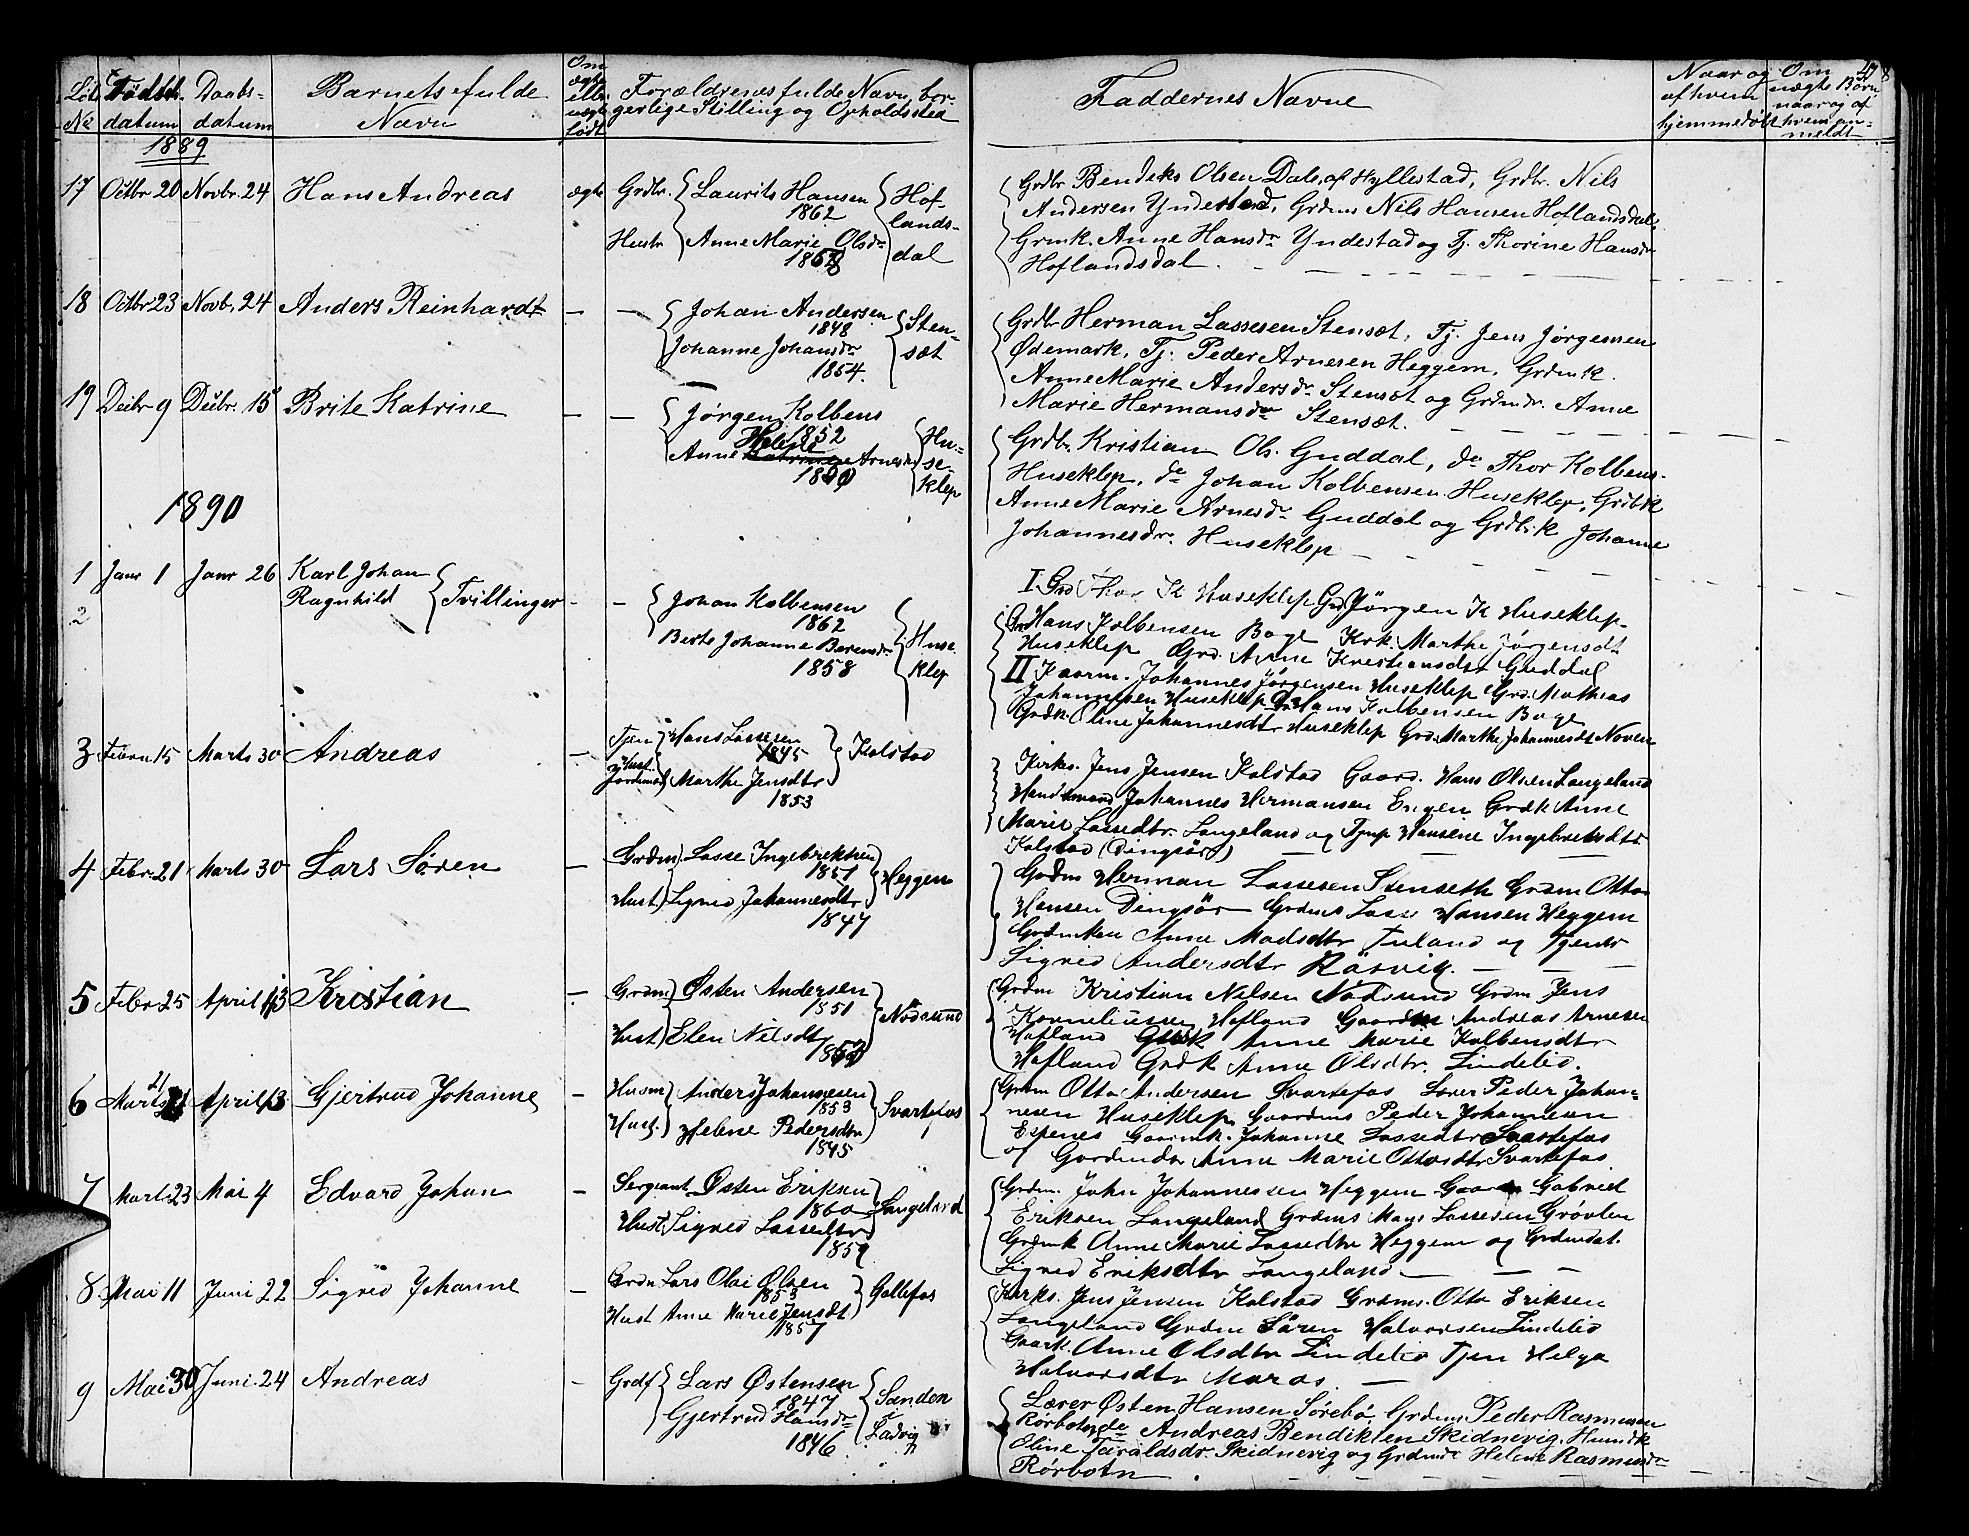 Löb. Fødsels- Daabs- Barnets fulde Om ægte eller uægte født Forældrenes fulde Navn, bor-
No datum datum Navn gerlige Stilling og Opholdssted
Faddernes Navne
Naar og af hvem hjemmedøbt
Om uægte Børn naar og af hvem an-meldt
1889
17 Octbr 20 Novbr. 24 Hans Andreas ægte Grdbr. Laurits Hansen 1862
Hustr Anne Marie Olsdr
Hof-
lands-
dal
Grdbr Bendiks Olsen Dale, af Hyllestad, Grdbr. Nils
Andersen Yndestad, Grdms Nils Hansen Hoflandsdal,
Grmk. Anne Hansdr Yndestad og Tj. Thorine Hansdr
Hoflandsdal.
18 Octbr 23 Novb. 24 Anders Reinhardt - - Johan Andersen
1848
Johanne Johansdr
1854.
Sten-
sæt
Grdbr Herman Lassesen Stensæt, Tj. Jens Jørgensen
Ødemark, Tj. Peder Arnesen Heggem, Grdmk.
Anne Marie Andersdr Stensæt og Grdmdr. Anne
Marie Hermansdr Stensæt.
19 Decbr 9 Decbr. 15 Brite Katrine - - Jørgen Kolbens
1852
Helene
Anne Arnesdr
Hu-
se-
klep
Grdbr. Kristian Ols. Guddal, do Thor Kolbens.
Huseklep, do Johan Kolbensen Huseklep, Grdbk
Anne Marie Arnesdr Guddal og Grdbk Johanne
Johannesdr. Huseklep
1890
1 Janr 1 Janr 26 Karl Johan
2 Ragnhild Tvillinger - - Johan Kolbensen
1862
Berte Johanne Berensdr
1858
Huse
klep
I Grd Thor K Huseklep Grd Jørgen K Huseklep
Hans Kolbensen Boge Kirk. Marthe Jørgensdt
Huseklep Grd. Anne Kristiansdtr Guddal
II Kaarm. Johannes Jørgensen Huseklep Grd. Mathias
Johannesen Huseklep Hans Kolbensen Boge
Grdk. Oline Johannesdtr Huseklep Grd. Marthe Johannesdt Noven
3 Febru 15 Marts 30 Andreas - Tjen Hans Lassesen
1845
Hust Marthe Jensdtr
1853
Kolstad
Kirks. Jens Jensen Kolstad Gaard. Hans Olsen Langeland
Johannes Hermansen Engen Grdk Anne
Marie Lassedtr. Langeland og Tjnp Hansene Ingebretsdtr
Kolstad (Dingsör)
4 Febr. 21 Marts 30 Lars Sören - Grdm Lasse Ingebrektsen
1851
Hust Sigrid Johannesdtr
1847
Heggem
Grdms Herman Lassesen Stenseth Grdm Otto
Hansen Dingsör Grdms Lasse Hansen Heggem
Grdmken Anne Madsdtr Tuland og Tjenr
Sigrid Andersdtr Rösvig.
5 Febr 25 April 13 Kristian - Grdm Østen Andersen
1851
Hust Elen Nilsdt
Nödsund
Grdm Kristian Nilsen Nödsund Grdm Jens
Korneliussen Hafland Gaardm Andreas Arnesen
Hafland Anne Marie Kolbensdtr
Hafland Grdk Anne Olsdtr. Lindelid.
6 Marts 21 April 13 Gjertrud Johanne - Husm Anders Johannesen
1853
Hust. Helene Pedersdtr
1845
Svartefos
Grdm Otto Andersen Svartefos Lærer Peder Johan-
nesen Huseklep Gaardms Peder Johannesen
Espenes Gaarmk. Johanne Lassedtr Svartefos
og Gardmdr Anne Marie Ottosdtr Svartefos
7 Marts 23 Mai 4 Edvard Johan - Sergeant Østen Eriksen
1860
Hust Sigrid Lassedtr
1859
Langeland
Grdm. John Johannessen Heggem Gabriel
Eriksen Langeland Grdms Hans Lassesen Grövlen
Grdmk Anne Marie Lassedtr Heggem og Grdmdat.
Sigrid Eriksdtr Langeland
8 Mai 11 Juni 22 Sigrid Johanne - Grdm Lars Olai Ølsen
1853
Hust Anne Marie Jensdt
1857
Gallefos
Kirks. Jens Jensen Kolstad Grdms. Otto Eriksen
Langeland Grdm Sören Halvorsen Lindelid
Gaark. Anne Olsdtr Lindelid Tjen Helga
Halvorsdtr
9 Mai 30 Juni. 24 Andreas - Grdf Lars Østensen
1847
Gjertrud Hansdr
1846
Sanden
i
Ladvig
Lærer Østen Hansen Sörebö, Grdms Peder Rasmussen
Rörbotn, do Andreas Bendiksen Skidnevig, Husmdk
Eline Taraldsdr. Skidnevig og Grdmdr Helene Rasmusdr
Rörbotn